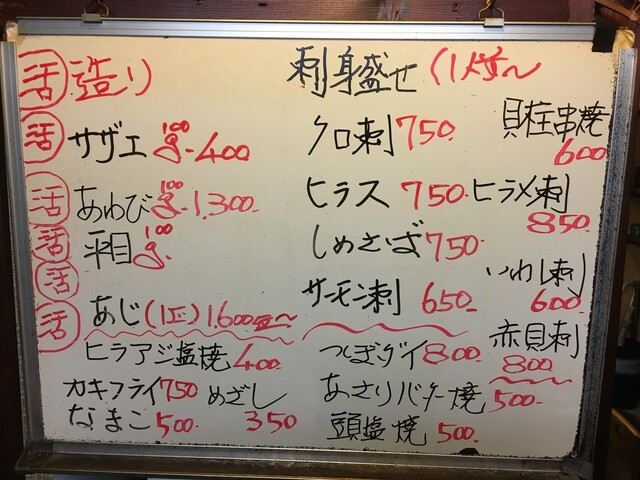 活 造り
活 サザエ 100g 400
活 あわび 100g 1,300-
活 平目 100g
活
活 あじ(1匹) 1,600〜
ヒラアジ塩焼 400
カキフライ 750 めざし 350
なまこ 500
刺身盛せ (1人前〜
クロ刺 750
ヒラス 750
しめさば 750
サーモン刺 650
つぼダイ 800
あさりバター焼 500
頭塩焼 500
貝柱串焼 600
ヒラメ刺 850
いわし刺 600
赤貝刺 800